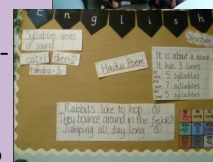 English
Syllables units
of sound
cat=1
open 2
banana=3
Haiku Poem
Structure
It is about a
It has 3 lines
5 syllables
7 syllables
5 syllables
Rabbits like to hop 5
They bounce around in the field 7
Jumping all day long 5